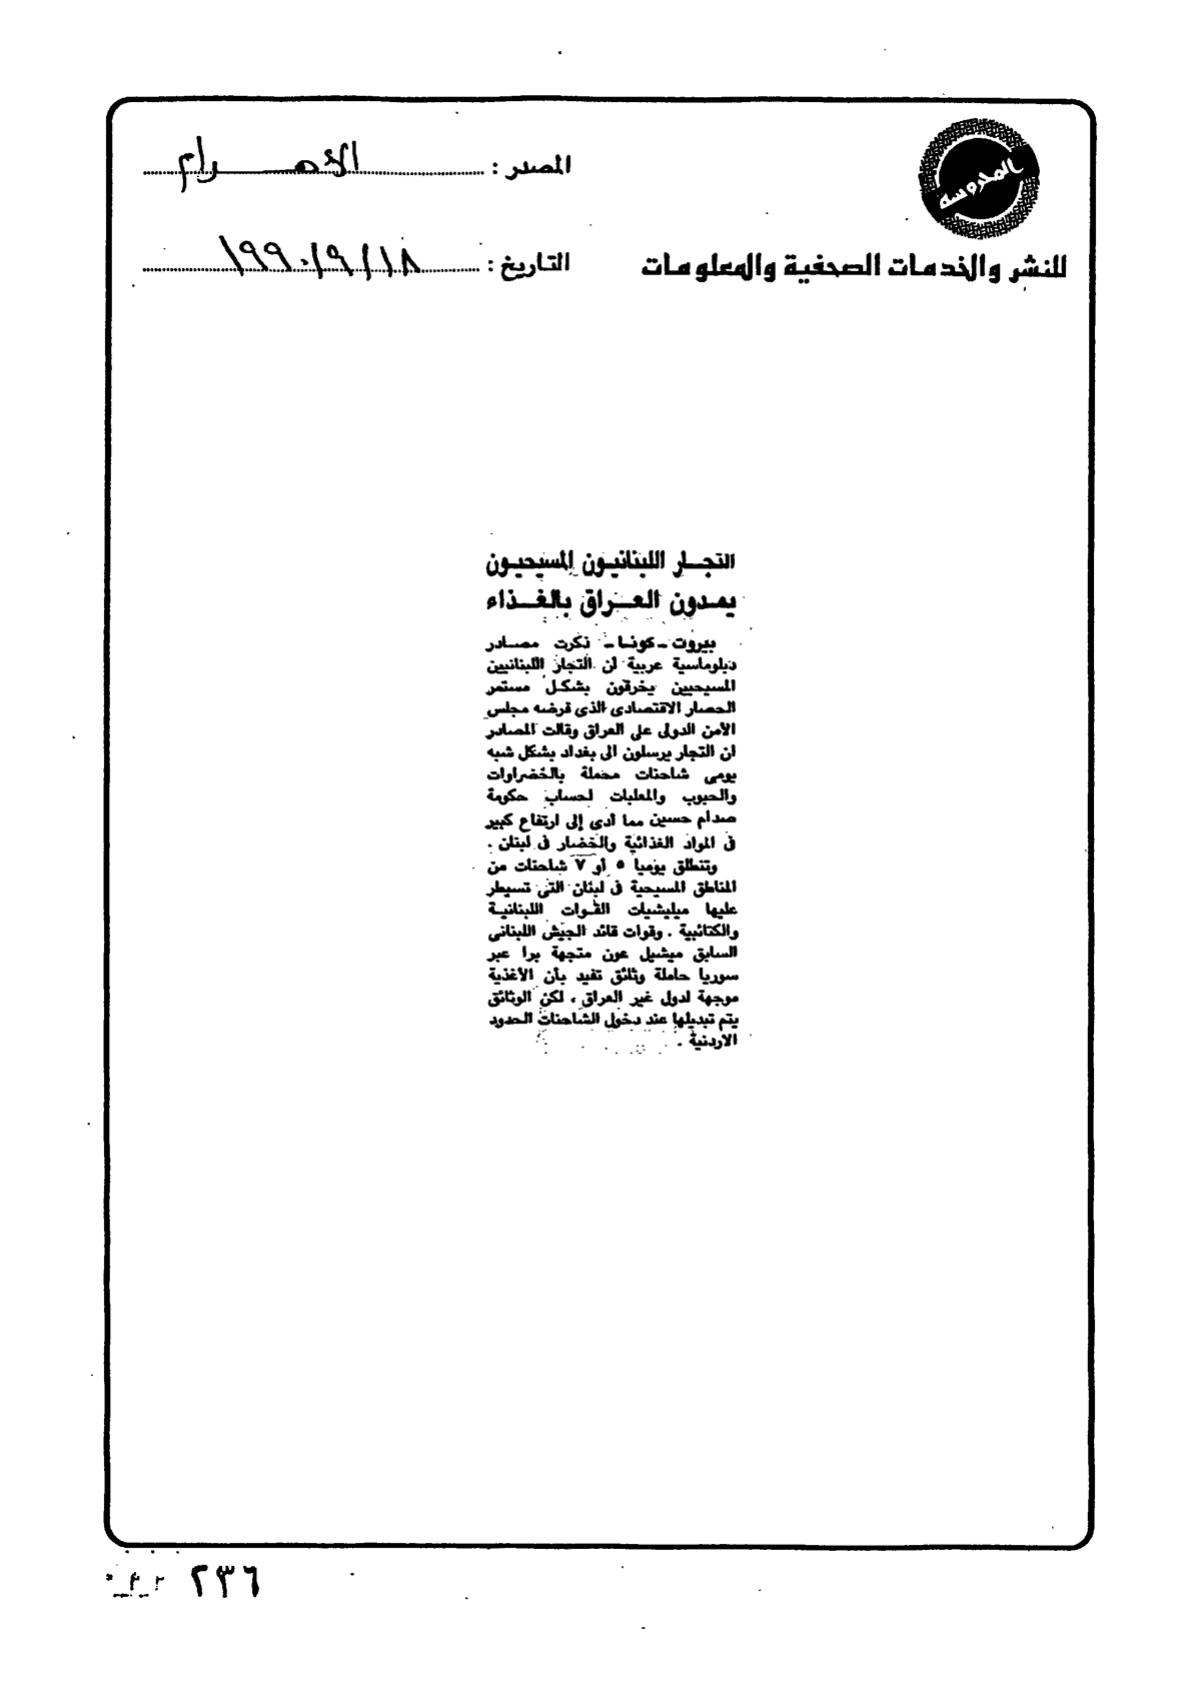 المحروسه
المصدر : الأهـرام
للنشر والخدمات الصحفية والمعلومات
التاريخ : ١٩٩٠/٩/١٨
التجـار اللبنانيـون المسيحيـون
يمـدون العـراق بالغـذاء
بيروت ـ كونـا ـ ذكرت مصـادر
دبلوماسية عربية أن التجار اللبنانيين
المسيحيين يخرقون بشكـل مستمر
الحصار الاقتصادى الذى فرضه مجلس
الأمن الدولى على العراق وقالت المصادر
ان التجار يرسلون الى بغداد بشكل شبه
يومى شاحنات محملة بالخضراوات
والحبوب والمعلبات لحساب حكومة
صدام حسين مما أدى إلى ارتفاع كبير
فى المواد الغذائية والخضار فى لبنان .
وتنطلق يوميا ٥ أو ٧ شاحنات من
المناطق المسيحية فى لبنان التى تسيطر
عليها ميليشيات القـوات اللبنانيـة
والكتائبية . وقوات قائد الجيش اللبنانى
السابق ميشيل عون متجهة برا عبر
سوريا حاملة وثائق تفيد بأن الأغذية
موجهة لدول غير العراق ، لكن الوثائق
يتم تبديلها عند دخول الشاحنات الحدود
الاردنية .
٢٣٦